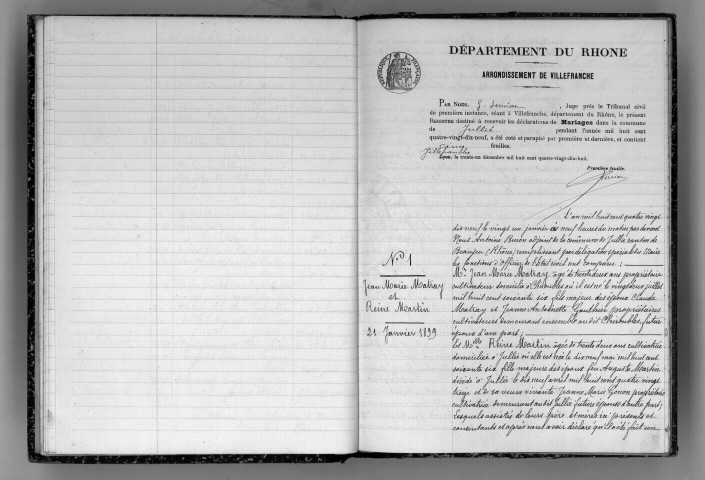 DÉPARTEMENT DU RHONE
ARRONDISSEMENT DE VILLEFRANCHE
PAR NOUS, , Juge près le Tribunal civil
de première instance, séant à Villefranche, département du Rhône, le présent
REGISTRE destiné à recevoir les déclarations de Mariages dans la commune
de Jullié pendant l'année mil huit cent
quatre-vingt-dix-neuf, a été coté et paraphé par première et dernière, et contient
feuilles.
Villefranche
Lyon, le trente-un décembre mil huit cent quatre-vingt-dix-huit.
Première feuille.
N° 1
Jean Marie Matray
et
Reine Martin
21 Janvier 1899
L'an mil huit cent quatre vingt
dix neuf le vingt un janvier à neuf heures du matin par devant
Nous Antoine adjoint de la commune de Jullié canton de
Beaujeu (Rhône) remplissant par délégation spéciale du Maire
les fonctions d'officier de l'état civil ont comparu :
Mr Jean Marie Matray âgé de trente deux ans propriétaire
cultivateur domicilié à Chiroubles où il est né le vingt deux juillet
mil huit cent soixante six fils majeur des époux Claude
Matray et Jeanne Antoinette Gauthier propriétaires
cultivateurs demeurant ensemble au dit Chiroubles, futur
époux d'une part ;
Et Melle Reine Martin âgée de trente deux ans cultivatrice
domiciliée à Jullié où elle est née le dix neuf mai mil huit cent
soixante six fille majeure des époux feu Auguste Martin
décédé à Jullié le dix neuf avril mil huit cent quatre vingt
treize et de sa veuve vivante Jeanne Marie propriétaire
cultivatrice demeurant au dit Jullié future épouse d'autre part ;
Lesquels assistés de leurs père et mères ici présents et
consentants et après nous avoir déclaré qu'il a été fait un